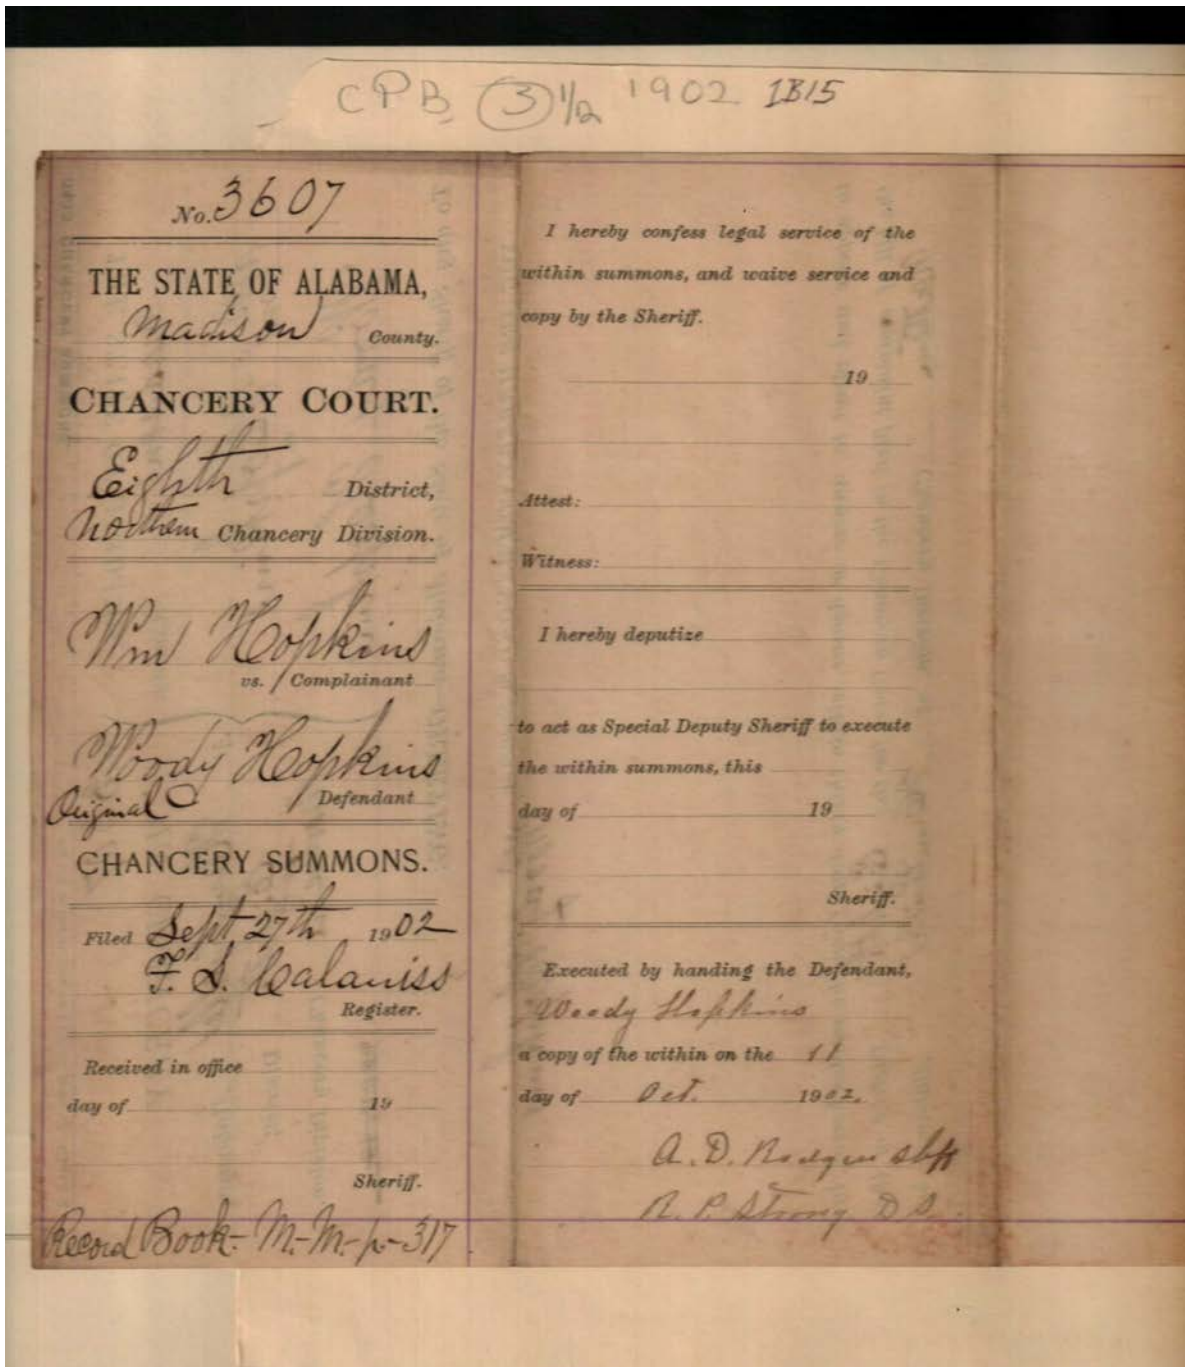 CPB 3 1/2 1902 1B15
No. 3607
THE STATE OF ALABAMA,
Madison County.
CHANCERY COURT.
Eighth District,
Northern Chancery Division.
Wm Hopkins
vs. Complainant
Woody Hopkins
Original Defendant
CHANCERY SUMMONS.
Filed Sept 27th 1902
F. S.
Register.
Received in office
day of 19
Sheriff.
Record Book- M-M- p-317
I hereby confess legal service of the
within summons, and waive service and
copy by the Sheriff.
19
Attest:
Witness:
I hereby deputize
to act as Special Deputy Sheriff to execute
the within summons, this
day of 19
Sheriff.
Executed by handing the Defendant,
Woody Hopkins
a copy of the within on the 11
day of Oct. 1902.
A. D. Rodgers Shff
R. P. Strong D S.